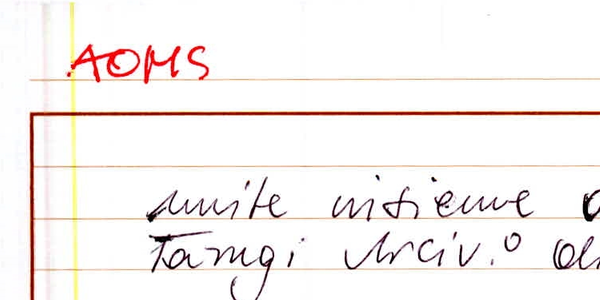 AOMS
unite insieme
Tamgi Arciv.º